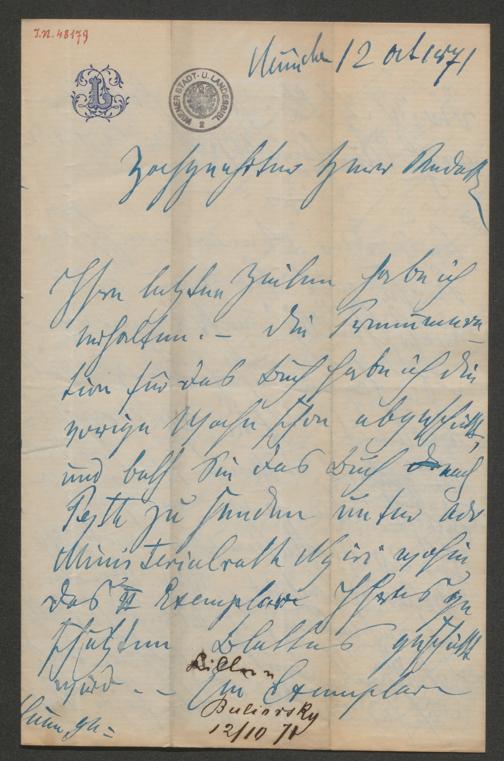 I.N. 48179
München 12 Oct 1871
L
WIENER STADT- U. LANDESBIBL.
Hochgeehrter Herr Redakt
Ihre letzten Zeilen habe ich
erhalten. – Die Pränumera
tion für das Buch habe ich die
vorige Woche schon abgeschickt,
und bath Sie das Buch nach
Pesth zu senden unter Adr
Ministerialrath wohin
das II Exemplare Ihres ge
schätzten Blattes geschickt
wird. – Ein Exemplare
Lilla v
Buliovsky
12/10 71